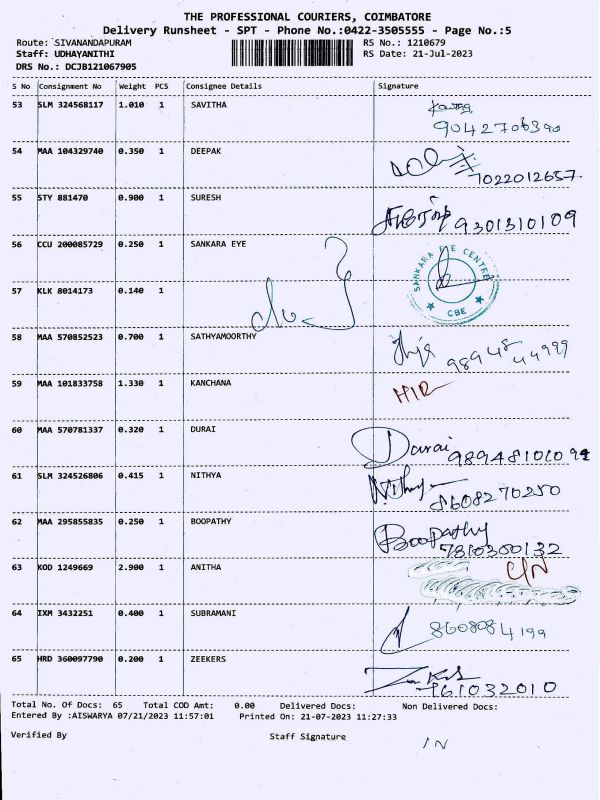 THE PROFESSIONAL COURIERS, COIMBATORE
Delivery Runsheet - SPT - Phone No.:0422-3505555 - Page No.:5
Route: SIVANANDAPURAM RS No.: 1210679
Staff: UDHAYANITHI RS Date: 21-Jul-2023
DRS No.: DCJB121067905
S No Consignment No Weight PCS Consignee Details Signature
53 SLM 324568117 1.010 1 SAVITHA
9042706390
54 MAA 104329740 0.350 1 DEEPAK
7022012657
55 STY 881470 0.900 1 SURESH
9301310109
56 CCU 200085729 0.250 1 SANKARA EYE
SANKARA EYE CENTRE
CBE
57 KLK 8014173 0.140 1
do
58 MAA 570852523 0.700 1 SATHYAMOORTHY
98948 44999
59 MAA 101833758 1.330 1 KANCHANA
60 MAA 570781337 0.320 1 DURAI
Durai
61 SLM 324526806 0.415 1 NITHYA
Nithya
8608270250
62 MAA 295855835 0.250 1 BOOPATHY
Boopathy
7810300132
63 KOD 1249669 2.900 1 ANITHA
64 IXM 3432251 0.400 1 SUBRAMANI
8608084199
65 HRD 360097790 0.200 1 ZEEKERS
Total No. Of Docs: 65 Total COD Amt: 0.00 Delivered Docs: Non Delivered Docs:
Entered By :AISWARYA 07/21/2023 11:57:01 Printed On: 21-07-2023 11:27:33
Verified By Staff Signature
IN